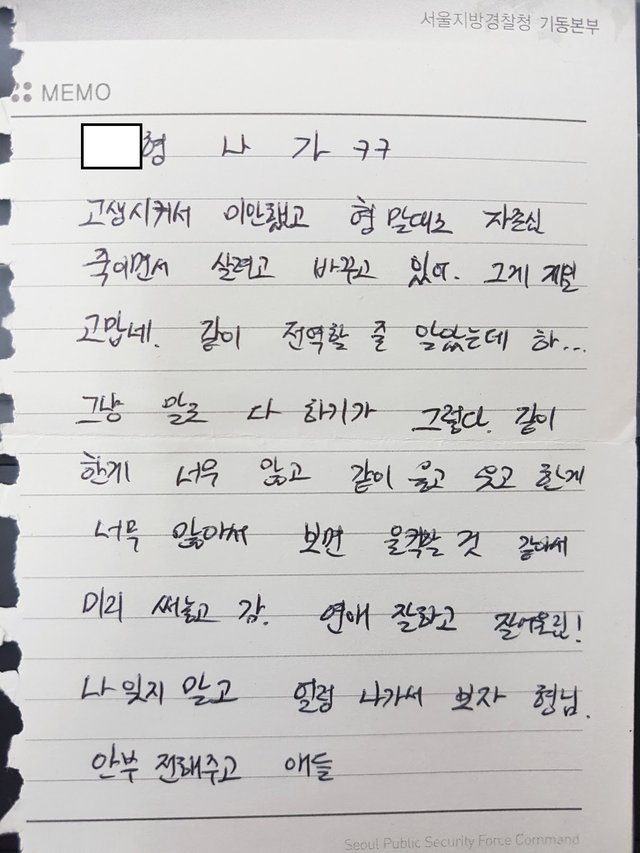 서울지방경찰청 기동본부
MEMO
형 나 가 ㅋㅋ
고생시켜서 미안했고 형 말대로 자존심
죽이면서 살려고 바꾸고 있어. 그게 제일
고맙네. 같이 전역할 줄 알았는데 하...
그냥 말로 다 하기가 그렇다. 같이
한게 너무 많고 같이 울고 웃고 한게
너무 많아서 보면 울컥할 것 같아서
미리 써놓고 감. 연애 잘하고 잘어울린!
나 잊지 말고 얼렁 나가서 보자 형님.
안부 전해주고 애들
Seoul Public Security Force Command